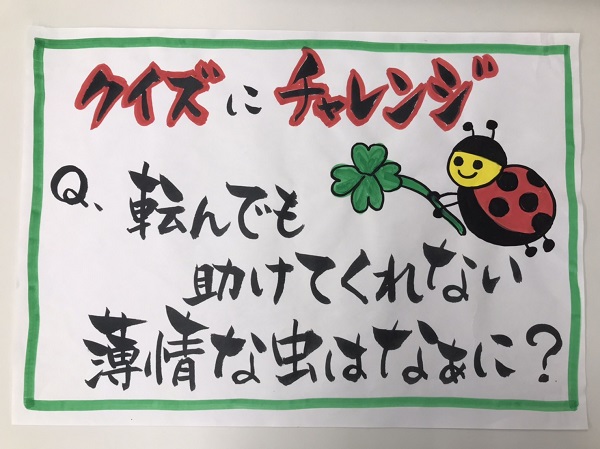 クイズにチャレンジ
Q、転んでも
助けてくれない
薄情な虫はなぁに？